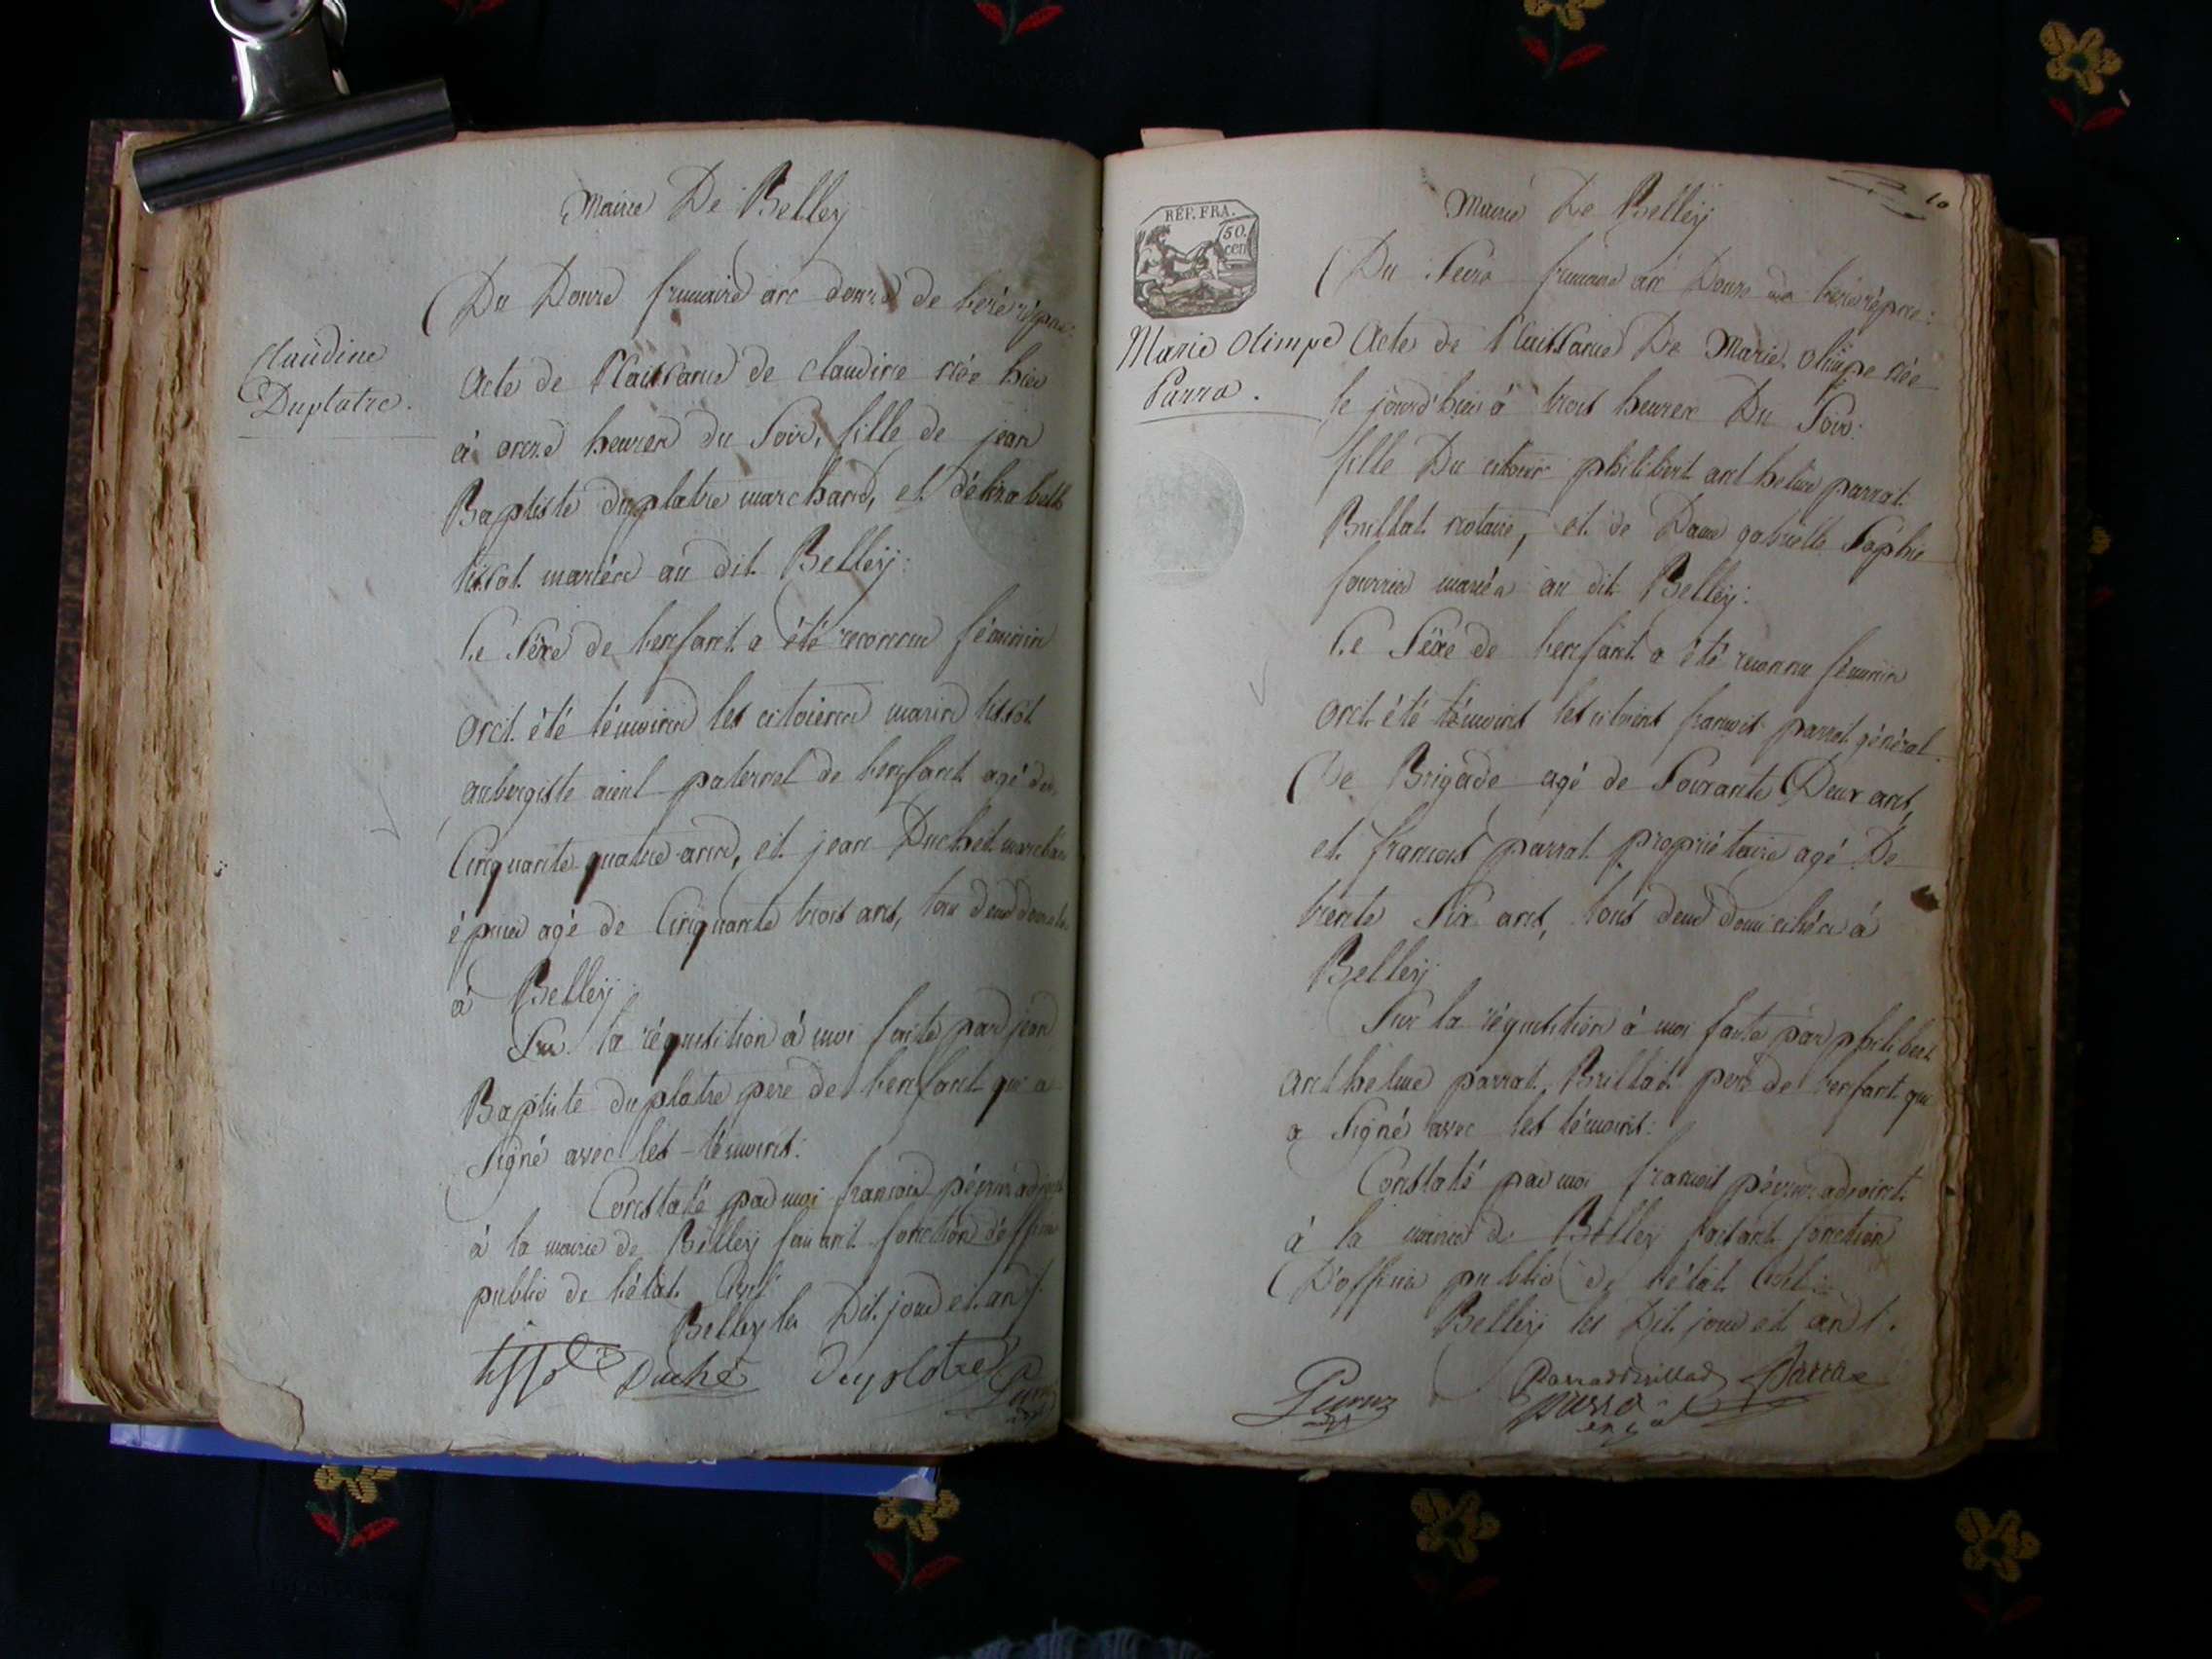 Mairie De Belley
Du Douze frimaire an douze de l'ère répne:
Claudine
Duplatre.
Acte de Naissance de claudine née hier
à onze heures du Soir, fille de jean
Baptiste duplatre marchand, et d'élizabeth
tissot mariés au dit Belley:
Le Séxe de l'enfant a été reconnu féminin
ont été témoins les citoiens marin tissot
aubergiste aieul paternel de l'enfant agé de
Cinquante quatre ans, et jean Duchet marchand
épicier agé de Cinquante trois ans, tous deux
à Belley:
Sur la réquisition à moi faite par jean
Baptiste duplatre pere de l'enfant qui a
Signé avec les témoins:
Constaté par moi francois adjoint
à la mairie de Belley faisant fonction d'officier
public de l'état Civil
Belley les Dit. jour et an
tissot Duché duplatre
10
Mairie De Belley
REP. FRA.
50.
cen
Du Seize frimaire an Douze de l'ère répne:
Marie Olimpe
Parra.
Acte de Naissance De Marie Olimpe née
le jourd'hier à trois heures Du Soir:
fille Du citoien philibert anthelme parrat
Brillat notaire, et de Dame gabrielle Sophie
fourrier mariés au dit Belley:
Le Séxe de l'enfant a été reconnu féminin
ont été témoins les citoiens francois parrat général
De Brigade agé de Soixante Deux ans,
et francois parrat propriétaire agé De
trente Six ans, tous deux domiciliés à
Belley
Sur la réquisition à moi faite par philibert
anthelme parrat Brillat pere de l'enfant qui
a Signé avec les témoins:
Constaté par moi francois adjoint
à la mairie de Belley faisant fonction
D'officier public de l'état Civil:
Belley les Dit. jour et an
Parra Brillat Parra
parra